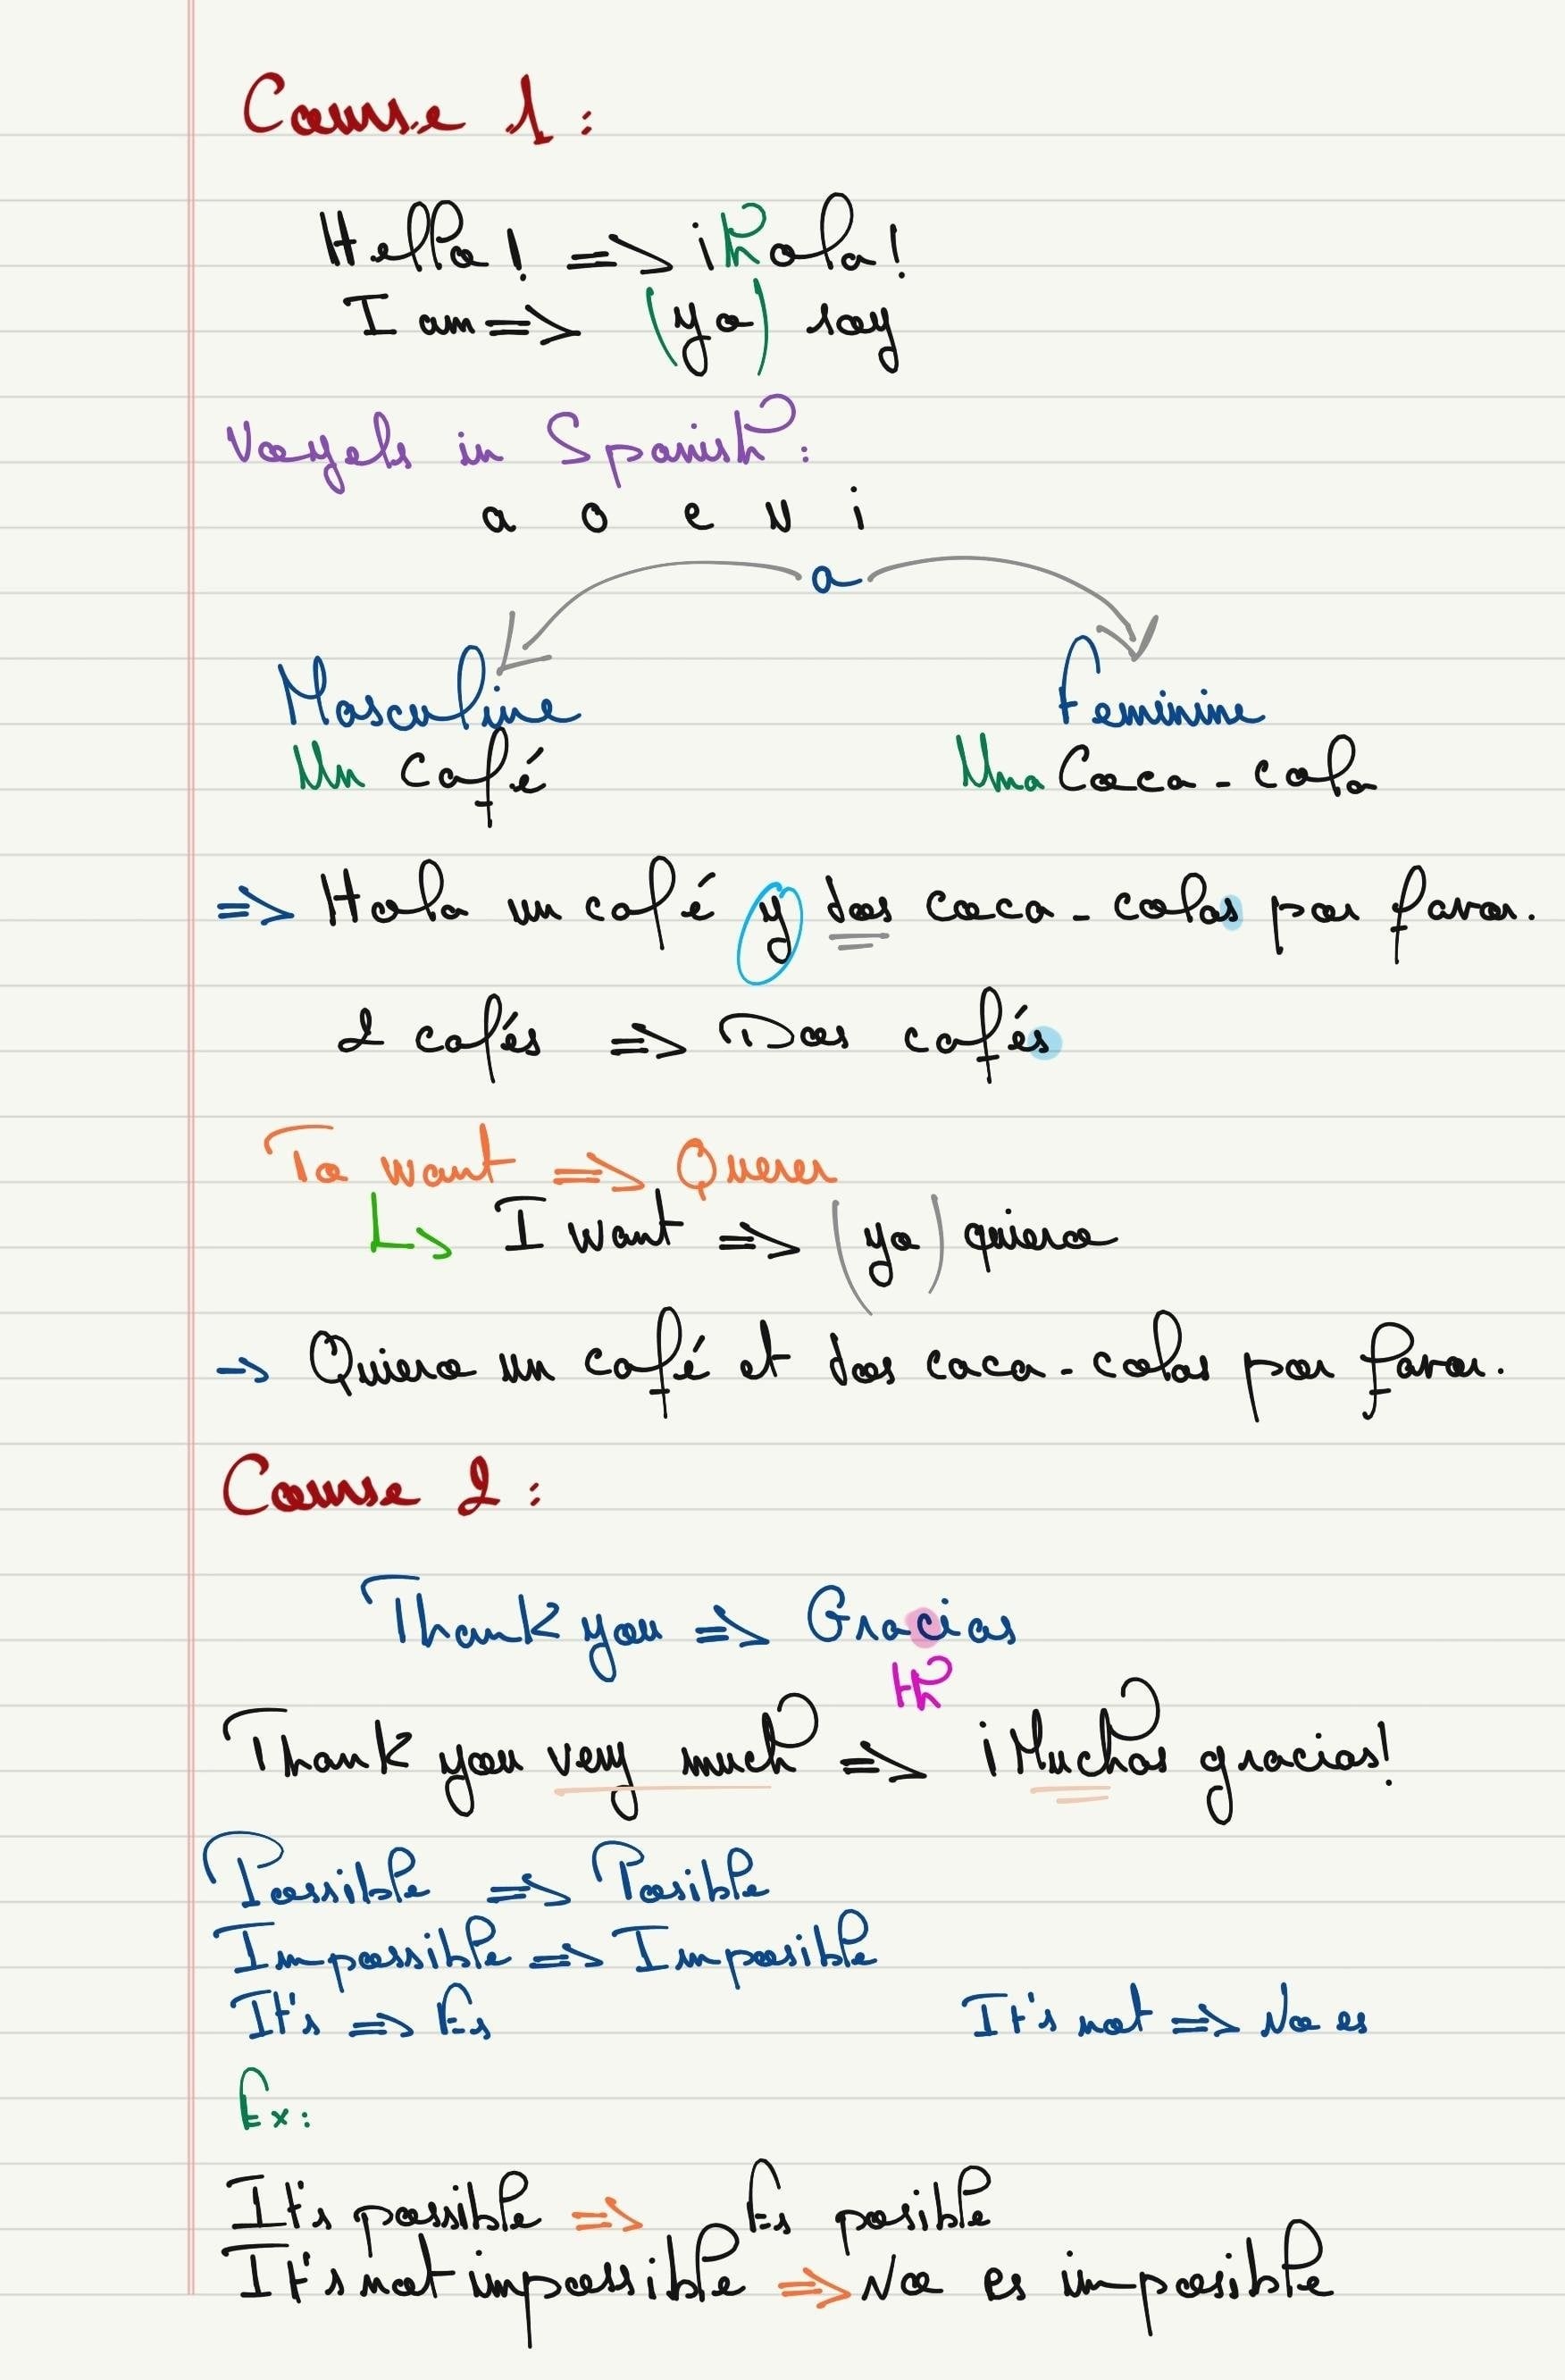 Course 1 :
Hello ! => ¡Hola !
I am => (yo) soy
Voyels in Spanish :
a o e u i
a
Masculine Feminine
Un café Una Coca - cola
=> Hola un café y dos coca - colas por favor.
2 cafés => Dos cafés
To want => Querer
↳ I want => (yo) quiero
=> Quiero un café et dos coca - colas por favor.
Course 2 :
Thank you => Gracias
th
Thank you very much => ¡Muchas gracias!
Possible => Posible
Impossible => Imposible
It's => Es It's not => No es
Ex :
It's possible => Es posible
It's not impossible => No es imposible